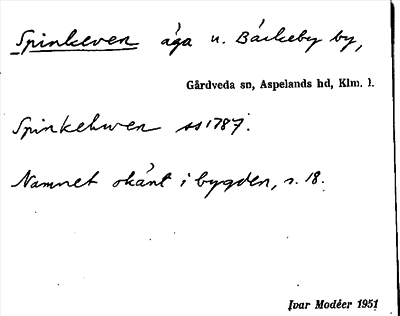 Spinkeven äga u. Bäckeby by,
Gårdveda sn, Aspelands hd, Klm. l.
Spinkehwen ss 1787.
Namnet okänt i bygden, s. 18.
Ivar Modéer 1951